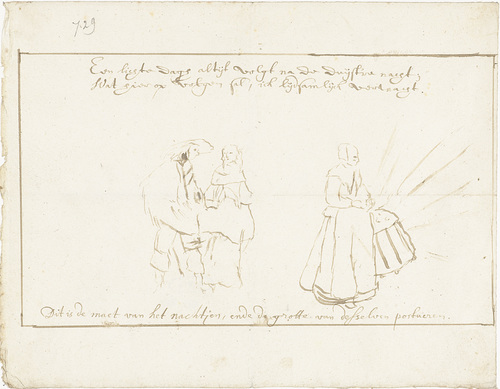 729
Een ligte dage altijt volgt na de duijstre nagt;
Wat hier op volgen sal, ick lijdsamlijk verwagt.
Dit is de maet van het nachtjen, ende de grotte van deselven postueren.